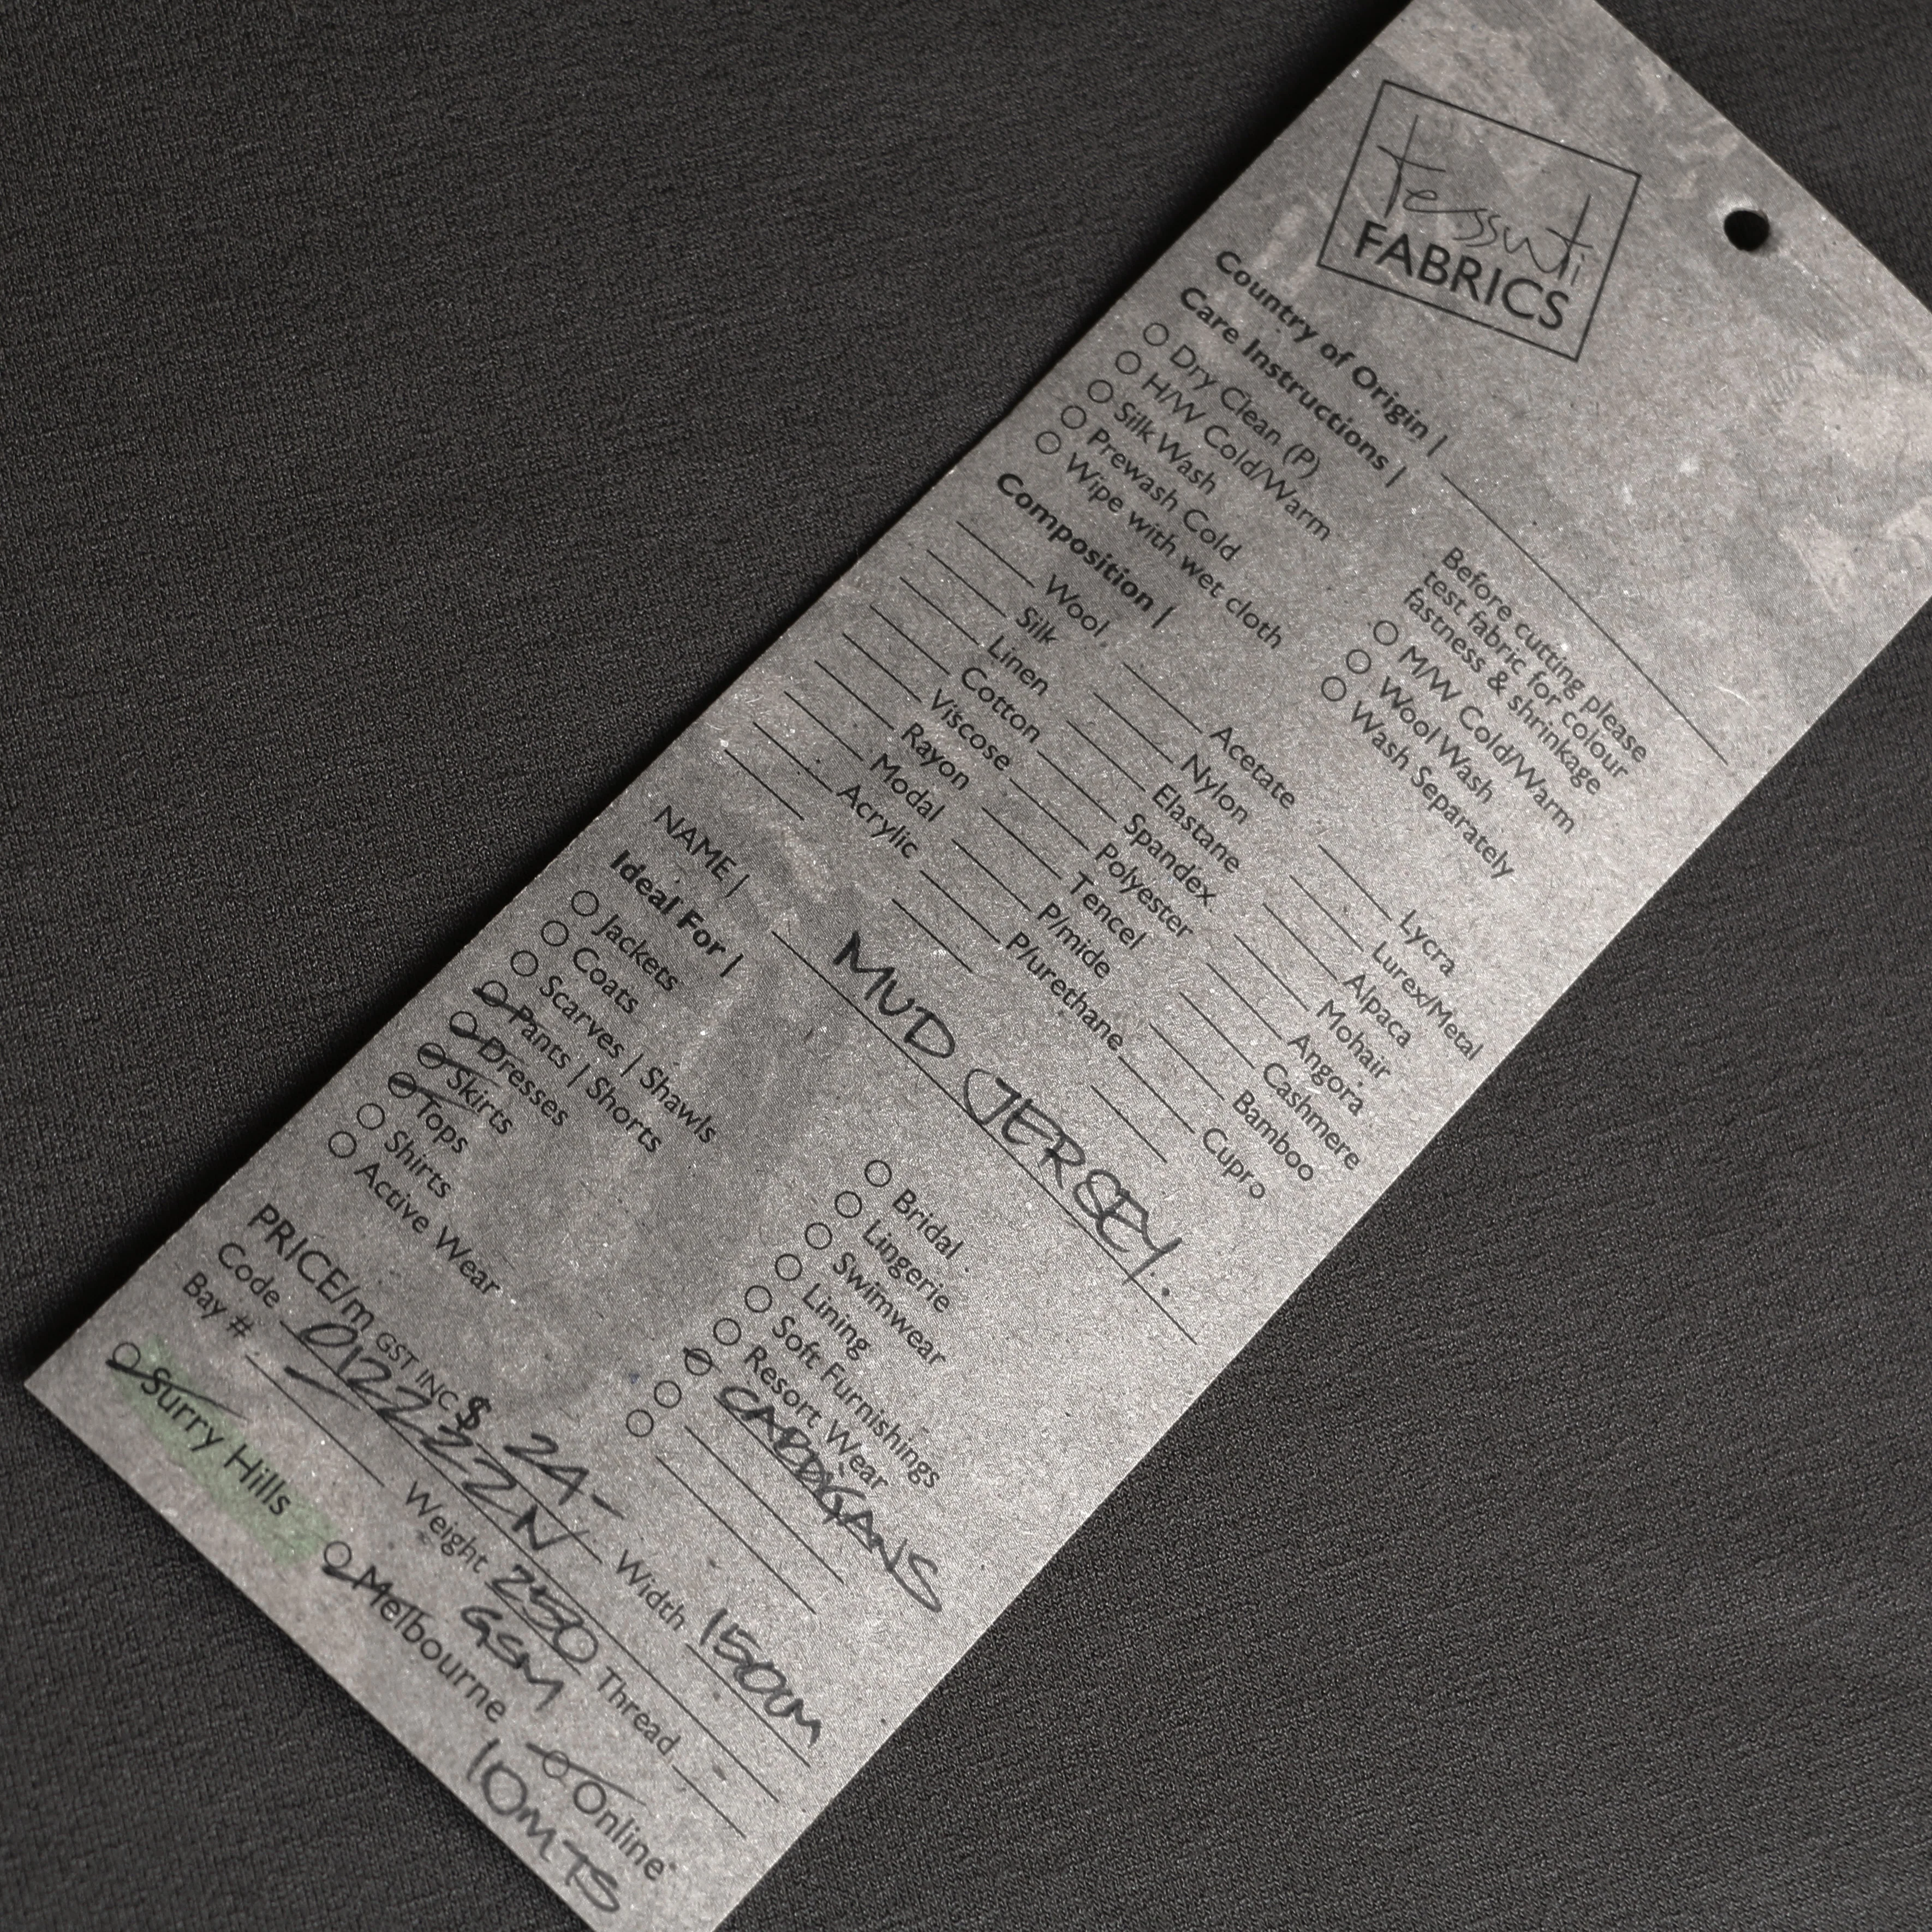 tessuti
FABRICS
Country of Origin |
Care Instructions |
Dry Clean (P)
H/W Cold/Warm
Silk Wash
Prewash Cold
Wipe with wet cloth
Before cutting please
test fabric for colour
fastness & shrinkage
M/W Cold/Warm
Wool Wash
Wash Separately
Composition |
Wool Acetate Lycra
Silk Nylon Lurex/Metal
Linen Elastane Alpaca
Cotton Spandex Mohair
Viscose Polyester Angora
Rayon Tencel Cashmere
Modal P/mide Bamboo
Acrylic P/urethane Cupro
NAME | MUD JERSEY.
Ideal For |
Jackets
Coats
Scarves | Shawls
Pants | Shorts
Dresses
Skirts
Tops
Shirts
Active Wear
Bridal
Lingerie
Swimwear
Lining
Soft Furnishings
Resort Wear
CARDIGANS
PRICE/m GST INC $ 24- Width 150CM
Code 012222N Thread -
Bay # Weight 250 GSM
Surry Hills Melbourne Online
10MTS